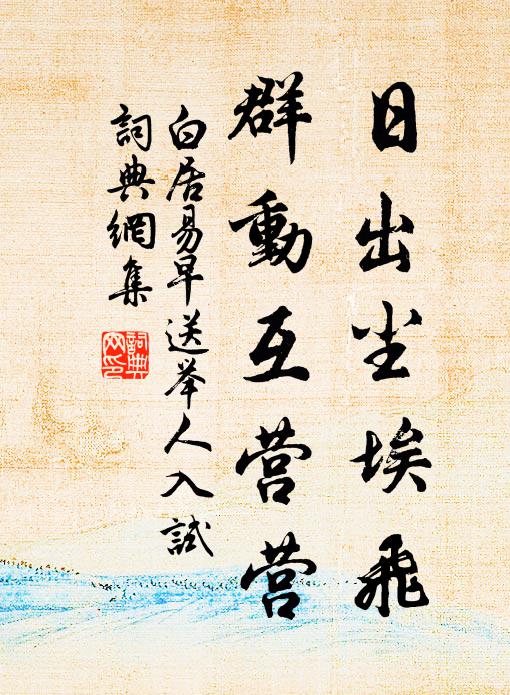 日出尘埃飛
群動互营营
白居易早送举人入試
詞典網集
詞典
网印